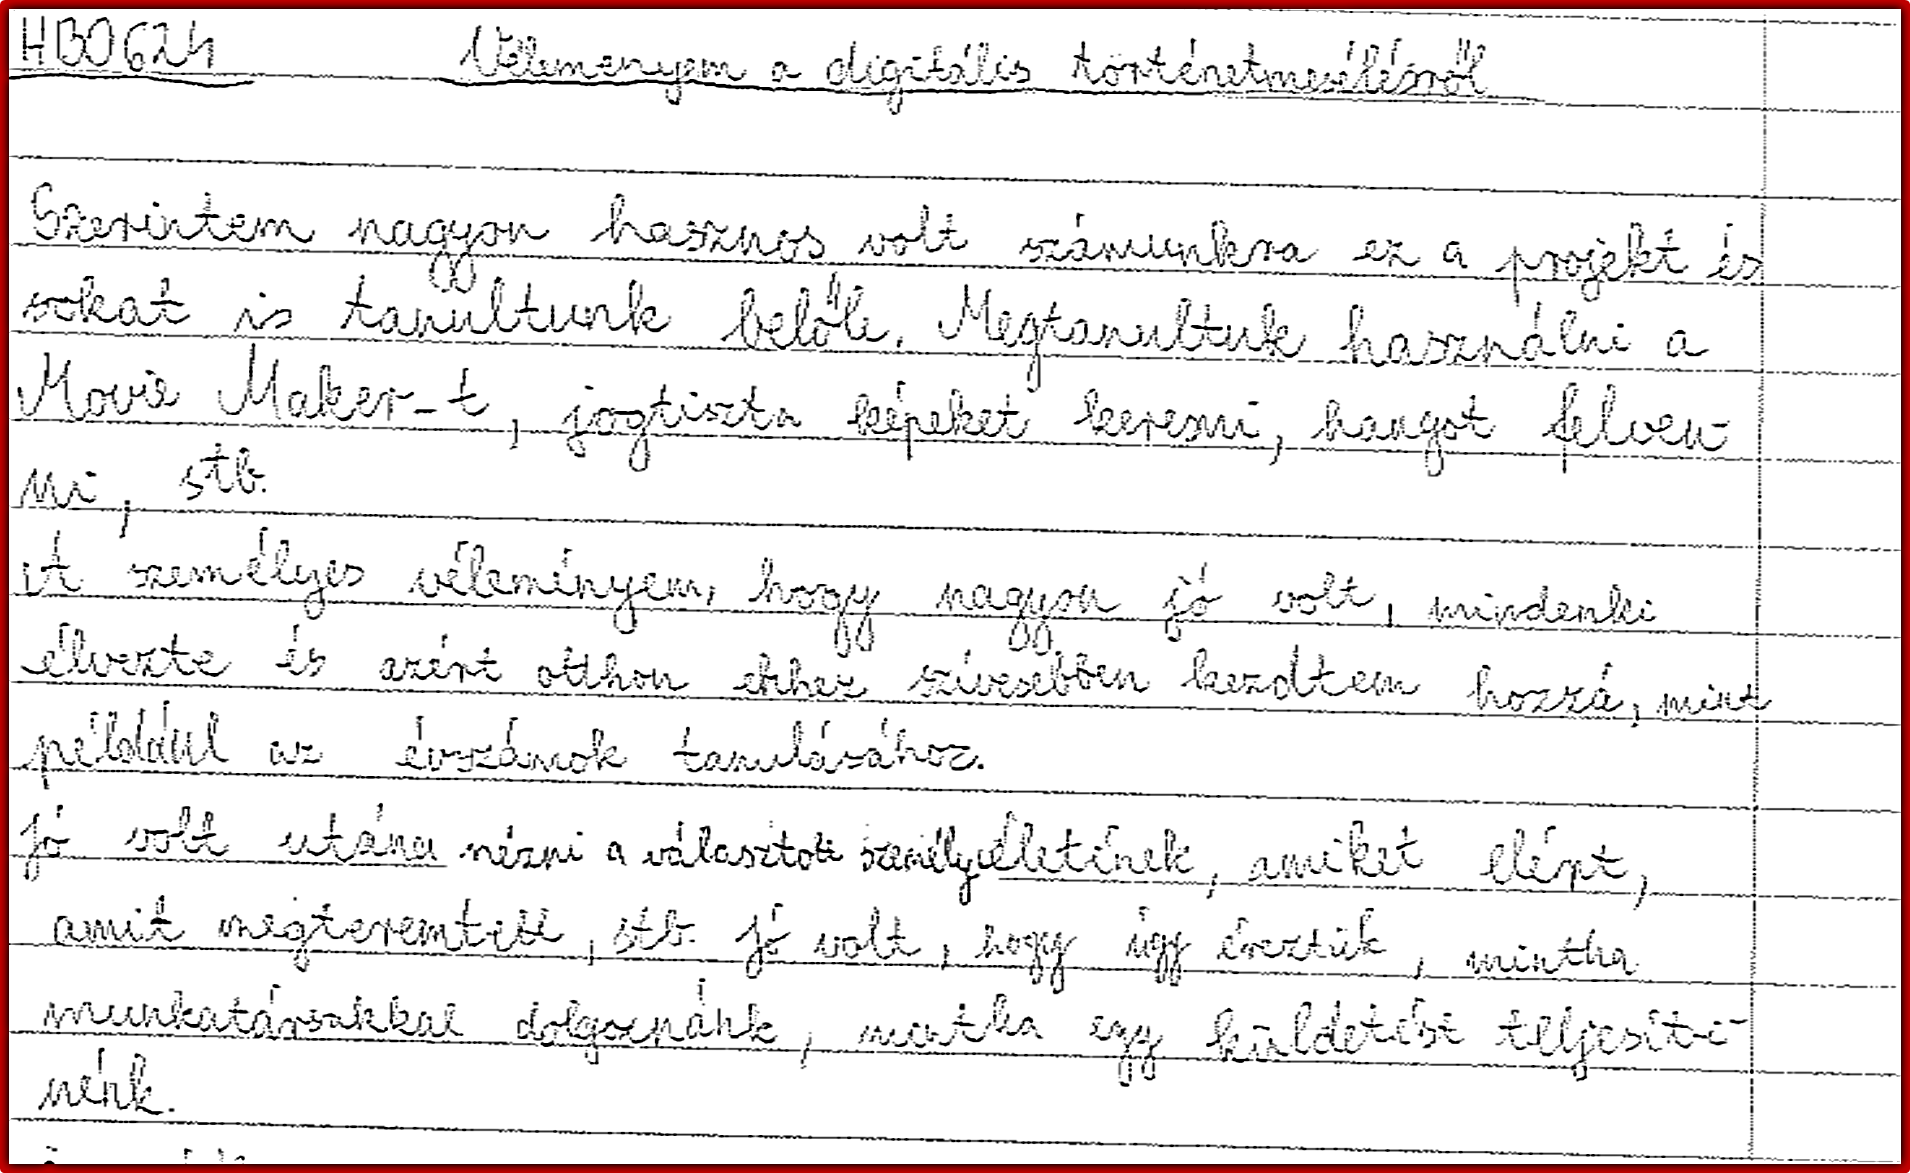 HB0624 Véleményem a digitális történetmesélésről
Szerintem nagyon hasznos volt számunkra ez a projekt és
sokat is tanultunk belőle. Megtanultuk használni a
Movie Maker-t, jogtiszta képeket keresni, hangot felven-
ni, stb.
A személyes véleményem, hogy nagyon jó volt, mindenki
élvezte és azért otthon ehhez szívesebben kezdtem hozzá, mint
például az évszámok tanulásához.
Jó volt utána nézni a választott személy életének, amiket elért,
amit megteremtett, stb. Jó volt, hogy úgy éreztük, mintha
munkatársakkal dolgoznánk, mintha egy küldetést teljesíte-
nénk.